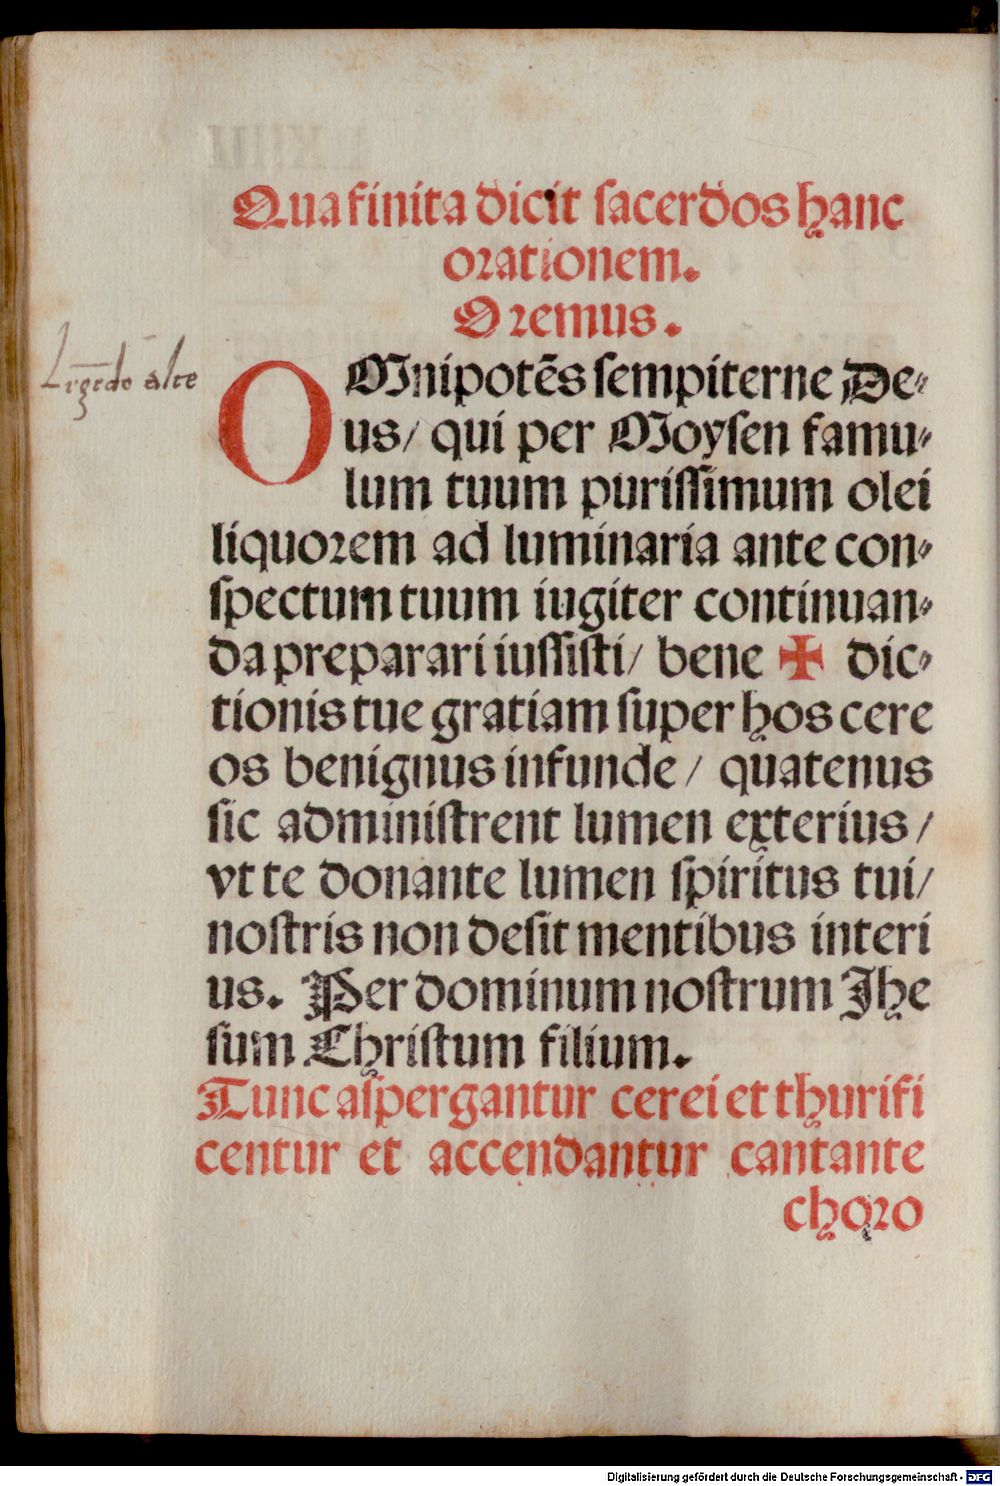 Qua finita dicit sacerdos hanc
orationem.
Oremus.
Legēdo alte
OMnipotēs sempiterne De⸗
us/ qui per Moysen famu⸗
lum tuum purissimum olei
liquorem ad luminaria ante con⸗
spectum tuum iugiter continuan⸗
da preparari iussisti/ bene ✠ dic⸗
tionis tue gratiam super hos cere
os benignus infunde/ quatenus
sic administrent lumen exterius/
vt te donante lumen spiritus tui/
nostris non desit mentibus interi
us. Per dominum nostrum Ihe
sum Christum filium.
Tunc aspergantur cerei et thurifi
centur et accendantur cantante
choro
Digitalisierung gefördert durch die Deutsche Forschungsgemeinschaft - DFG